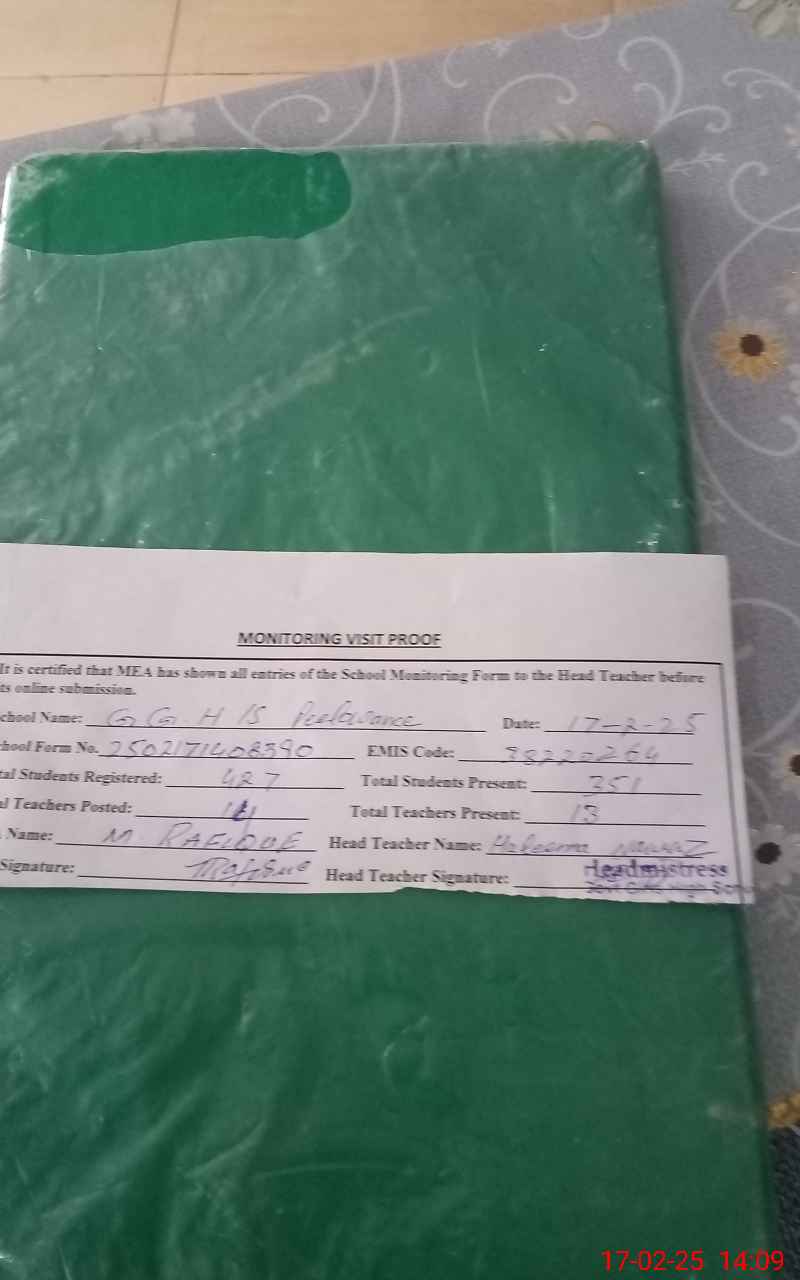 MONITORING VISIT PROOF
It is certified that MEA has shown all entries of the School Monitoring Form to the Head Teacher before
ts online submission.
chool Name: G G H IS Date: 17-2-25
hool Form No. 2502171408390 EMIS Code: 38220264
tal Students Registered: 427 Total Students Present: 351
l Teachers Posted: 14 Total Teachers Present: 13
Name: M. RAFIQUE Head Teacher Name: Haleema NAWAZ
Signature: Head Teacher Signature: Headmistress
17-02-25 14:09